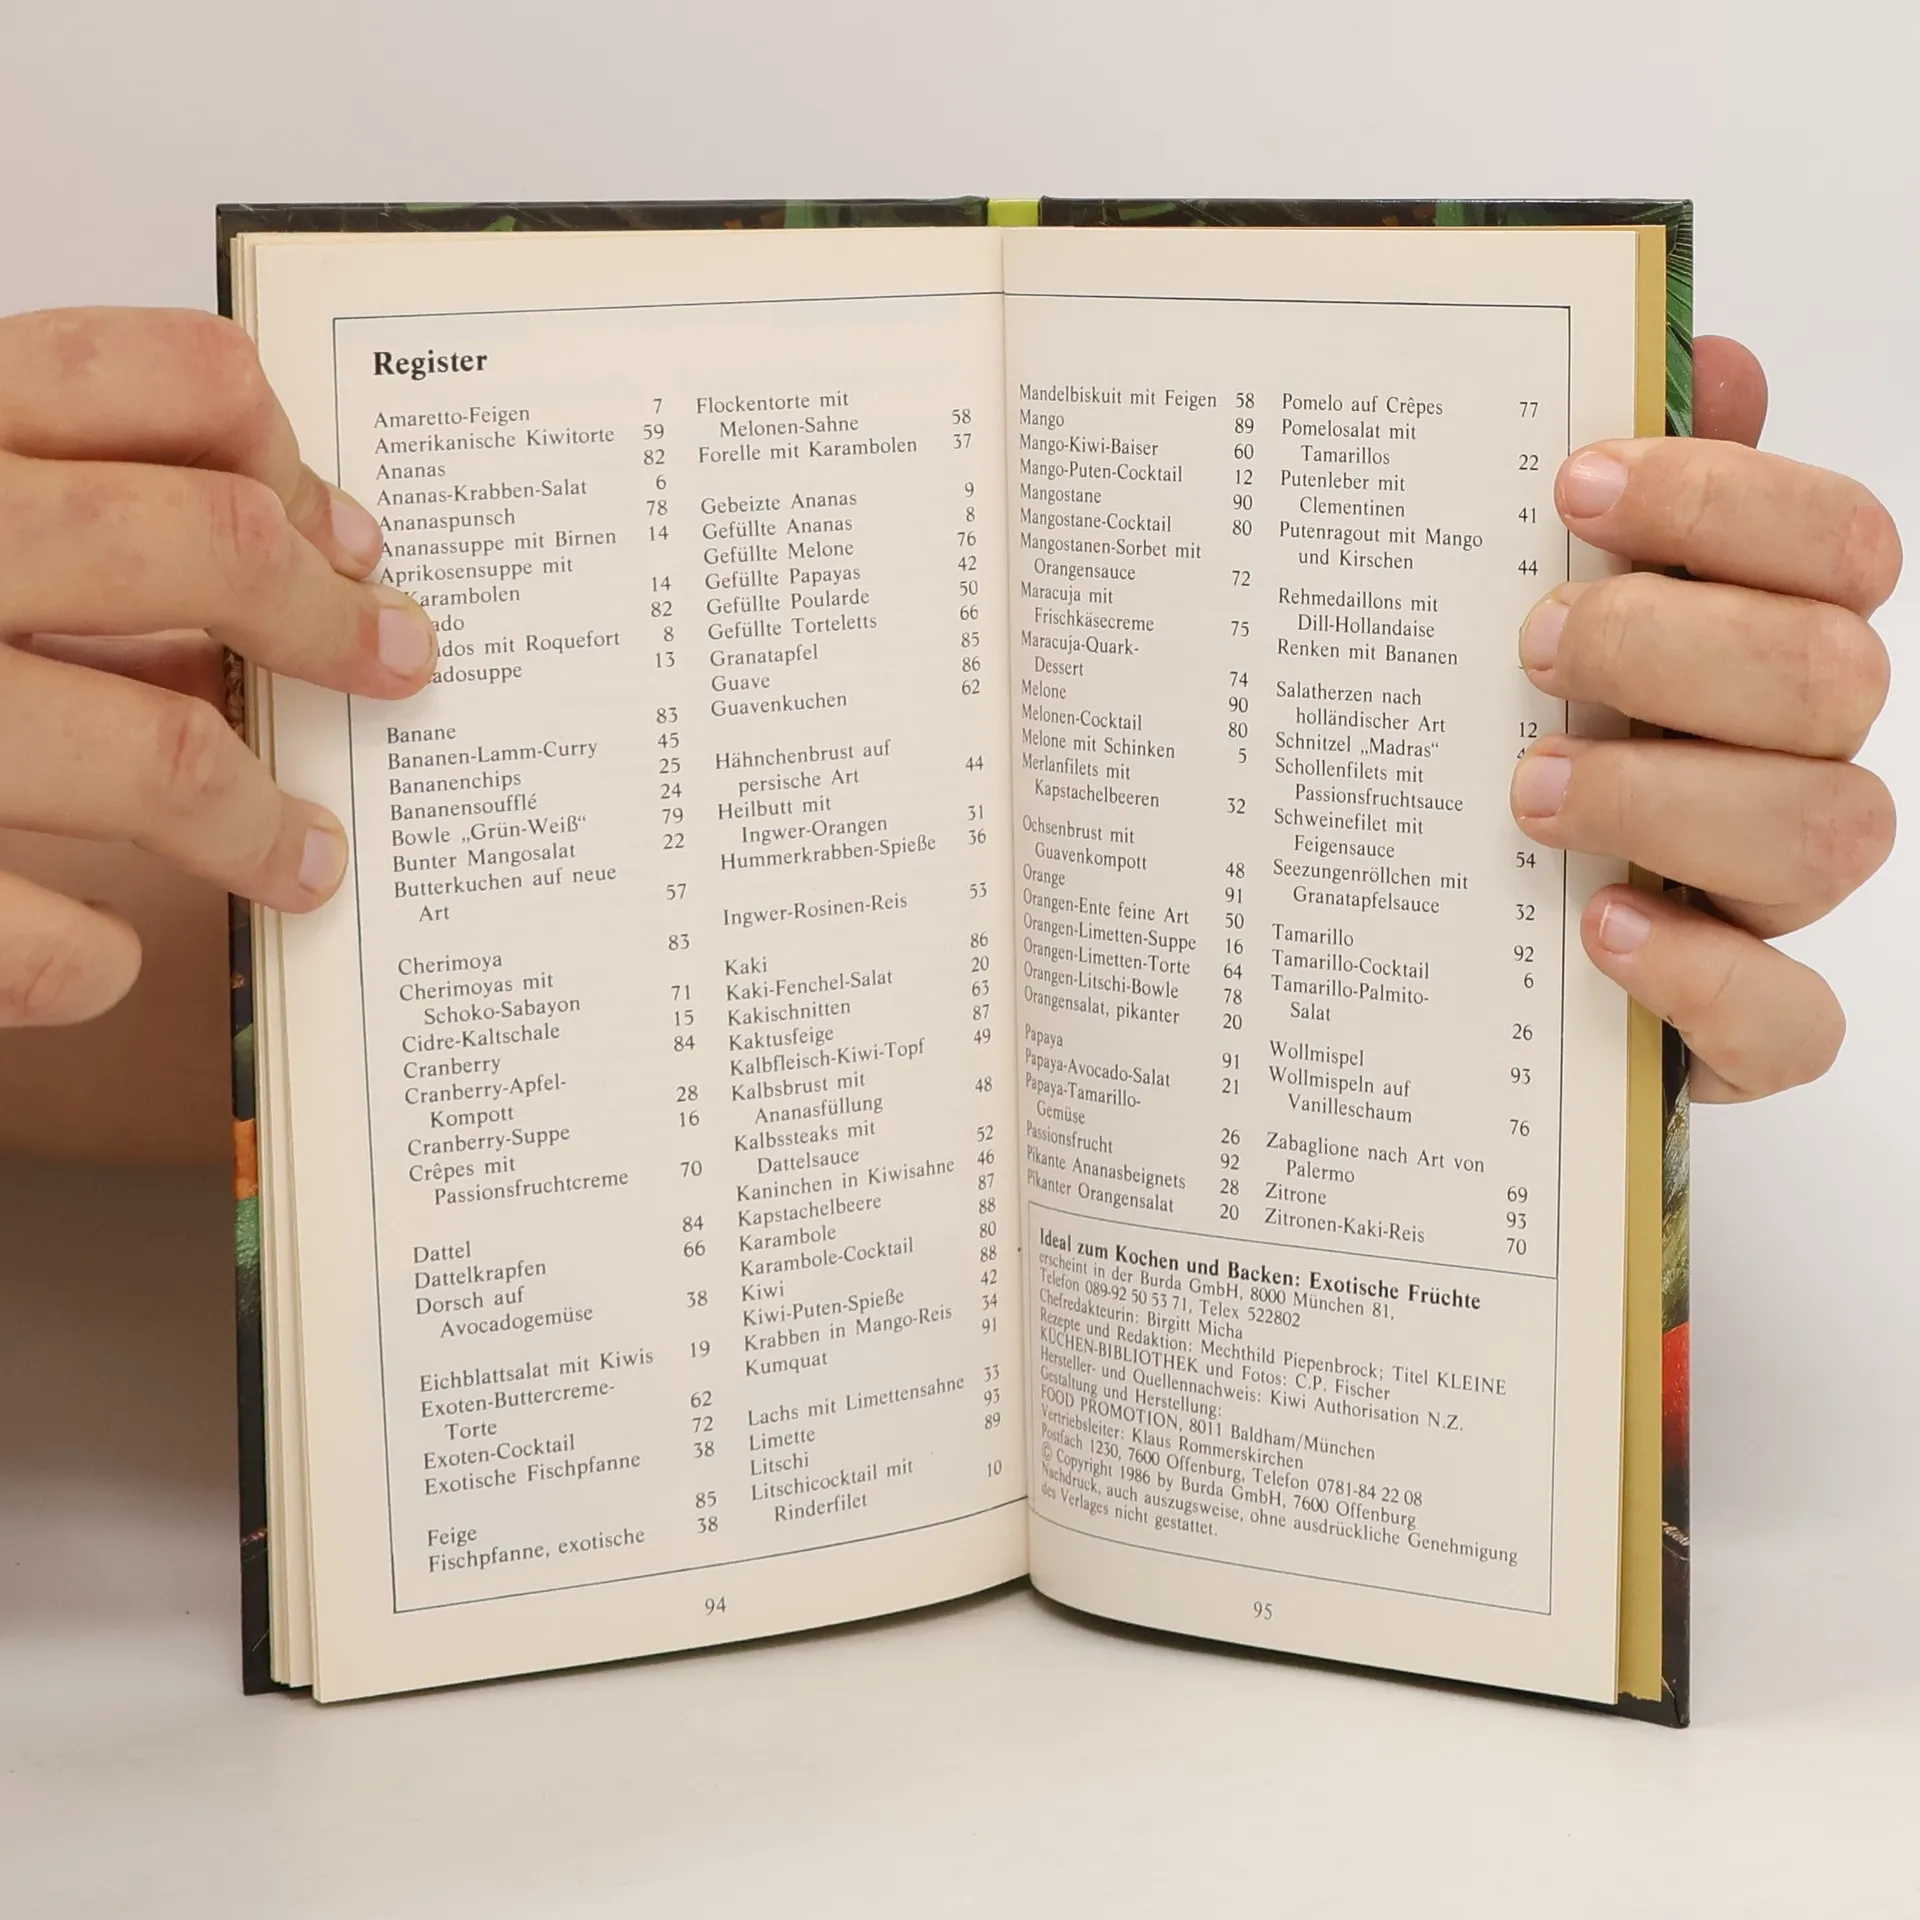 Register
Amaretto-Feigen 7
Amerikanische Kiwitorte 59
Ananas 82
Ananas-Krabben-Salat 6
Ananaspunsch 78
Ananassuppe mit Birnen 14
Aprikosensuppe mit
Karambolen 14
ado 82
dos mit Roquefort 8
adosuppe 13
Banane 83
Bananen-Lamm-Curry 45
Bananenchips 25
Bananensoufflé 24
Bowle „Grün-Weiß“ 79
Bunter Mangosalat 22
Butterkuchen auf neue
Art 57
Cherimoya 83
Cherimoyas mit
Schoko-Sabayon 71
Cidre-Kaltschale 15
Cranberry 84
Cranberry-Apfel-
Kompott 28
Cranberry-Suppe 16
Crêpes mit
Passionsfruchtcreme 70
Dattel 84
Dattelkrapfen 66
Dorsch auf
Avocadogemüse 38
Eichblattsalat mit Kiwis 19
Exoten-Buttercreme-
Torte 62
Exoten-Cocktail 72
Exotische Fischpfanne 38
Feige 85
Fischpfanne, exotische 38
Flockentorte mit
Melonen-Sahne 58
Forelle mit Karambolen 37
Gebeizte Ananas 9
Gefüllte Ananas 8
Gefüllte Melone 76
Gefüllte Papayas 42
Gefüllte Poularde 50
Gefüllte Torteletts 66
Granatapfel 85
Guave 86
Guavenkuchen 62
Hähnchenbrust auf
persische Art 44
Heilbutt mit
Ingwer-Orangen 31
Hummerkrabben-Spieße 36
Ingwer-Rosinen-Reis 53
Kaki 86
Kaki-Fenchel-Salat 20
Kakischnitten 63
Kaktusfeige 87
Kalbfleisch-Kiwi-Topf 49
Kalbsbrust mit
Ananasfüllung 48
Kalbssteaks mit
Dattelsauce 52
Kaninchen in Kiwisahne 46
Kapstachelbeere 87
Karambole 88
Karambole-Cocktail 80
Kiwi 88
Kiwi-Puten-Spieße 42
Krabben in Mango-Reis 34
Kumquat 91
Lachs mit Limettensahne 33
Limette 93
Litschi 89
Litschicocktail mit
Rinderfilet 10
94
Mandelbiskuit mit Feigen 58
Mango 89
Mango-Kiwi-Baiser 60
Mango-Puten-Cocktail 12
Mangostane 90
Mangostane-Cocktail 80
Mangostanen-Sorbet mit
Orangensauce 72
Maracuja mit
Frischkäsecreme 75
Maracuja-Quark-
Dessert 74
Melone 90
Melonen-Cocktail 80
Melone mit Schinken 5
Merlanfilets mit
Kapstachelbeeren 32
Ochsenbrust mit
Guavenkompott 48
Orange 91
Orangen-Ente feine Art 50
Orangen-Limetten-Suppe 16
Orangen-Limetten-Torte 64
Orangen-Litschi-Bowle 78
Orangensalat, pikanter 20
Papaya 91
Papaya-Avocado-Salat 21
Papaya-Tamarillo-
Gemüse 26
Passionsfrucht 92
Pikante Ananasbeignets 28
Pikanter Orangensalat 20
Pomelo auf Crêpes 77
Pomelosalat mit
Tamarillos 22
Putenleber mit
Clementinen 41
Putenragout mit Mango
und Kirschen 44
Rehmedaillons mit
Dill-Hollandaise
Renken mit Bananen
Salatherzen nach
holländischer Art 12
Schnitzel „Madras“
Schollenfilets mit
Passionsfruchtsauce
Schweinefilet mit
Feigensauce 54
Seezungenröllchen mit
Granatapfelsauce 32
Tamarillo 92
Tamarillo-Cocktail 6
Tamarillo-Palmito-
Salat 26
Wollmispel 93
Wollmispeln auf
Vanilleschaum 76
Zabaglione nach Art von
Palermo 69
Zitrone 93
Zitronen-Kaki-Reis 70
Ideal zum Kochen und Backen: Exotische Früchte
erscheint in der Burda GmbH, 8000 München 81,
Telefon 089-92 50 53 71, Telex 522802
Chefredakteurin: Birgitt Micha
Rezepte und Redaktion: Mechthild Piepenbrock; Titel KLEINE
KÜCHEN-BIBLIOTHEK und Fotos: C.P. Fischer
Hersteller- und Quellennachweis: Kiwi Authorisation N.Z.
Gestaltung und Herstellung:
FOOD PROMOTION, 8011 Baldham/München
Vertriebsleiter: Klaus Rommerskirchen
Postfach 1230, 7600 Offenburg, Telefon 0781-84 22 08
© Copyright 1986 by Burda GmbH, 7600 Offenburg
Nachdruck, auch auszugsweise, ohne ausdrückliche Genehmigung
des Verlages nicht gestattet.
95